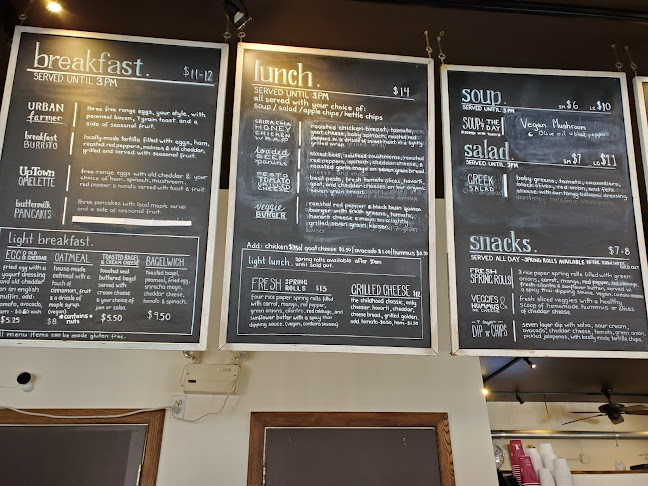 breakfast.
$11-12
SERVED UNTIL 3PM
URBAN
farmer
three free range eggs, your style, with
peameal bacon, 7 grain toast and a
side of seasonal fruit.
breakfast
BURRITO
locally-made tortilla filled with eggs, ham,
roasted red peppers, & old cheddar,
grilled and served with seasonal fruit.
UpTown
OMELETTE
free range eggs with old cheddar & your
choice of ham, spinach, mushroom,
red pepper & tomato served with toast & fruit.
buttermilk
PANCAKES
three pancakes with local maple syrup
and a side of seasonal fruit.
light breakfast.
EGG & OLD CHEDDAR
fried egg with a
yogurt dressing
and old cheddar
on an english
muffin, add:
tomato, avocado,
each
$5.25
OATMEAL
house-made
oatmeal with a
touch of
cinnamon, fruit
& a drizzle of
maple syrup.
$8 *contains
nuts
TOASTED BAGEL
& CREAM CHEESE
toasted and
buttered bagel
served with
cream cheese
& your choice of
jam or salsa.
$5.50
BAGELWICH
toasted bagel,
peameal, fried egg,
sriracha mayo,
cheddar cheese,
tomato & spinach.
$9.50
all menu items can be made gluten free.
lunch.
$14
SERVED UNTIL 3PM
all served with your choice of:
soup / salad / apple chips / kettle chips
SRIRACHA
HONEY
CHICKEN
WRAP
roasted chicken breast, tomato,
goat cheese, baby spinach, roasted red
peppers in a sriracha sweet heat in a lightly
grilled wrap.
Loaded
BEEF
sliced beef, sauteed mushrooms, roasted
red pepper, spinach, cheddar cheese, &
roasted garlic mayo on seven grain bread.
PESTO
TOMATO
GRILLED
CHEESE
basil pesto, fresh tomato slices, havarti,
goat, and cheddar cheeses on our organic
seven grain bread.
Veggie
BURGER
roasted red pepper & black bean quinoa
burger with fresh greens, tomato,
havarti cheese & mayo on a lightly
grilled, seven grain, kaiser.
Add: chicken $5 | goat cheese $2.50 | avocado $2.00 | hummus $2.50
light lunch. Spring rolls available after 11am
until Sold out.
FRESH SPRING
ROLLS $13
four rice paper spring rolls filled
with carrot, mango, red pepper,
green onions, cilantro, red cabbage, and
sunflower butter with a spicy thai
dipping sauce. (vegan, contains sesame)
GRILLED CHEESE $12
the childhood classic, only
cheesier: havarti, cheddar,
cheese bread, grilled golden.
add: tomato $0.50, ham $1.50
soup.
SM $6 LG $10
SERVED UNTIL 3PM
SOUP OF THE
DAY
Vegan Mushroom
& Olive oil & black pepper
salad.
SM $7 LG $11
SERVED UNTIL 3PM
GREEK
SALAD
baby greens, tomato, cucumbers,
black olives, red onion, and feta
cheese with our tangy balsamic dressing.
snacks.
$7-8
SERVED ALL DAY - SPRING ROLLS AVAILABLE AFTER 11AM UNTIL
SOLD OUT
FRESH
SPRING ROLLS
3 rice paper spring rolls filled with green
onions, carrot, mango, red pepper, red cabbage,
fresh cilantro & sunflower butter, served with
a spicy thai dipping sauce. (vegan, contains sesame)
VEGGIES
& HUMMUS
OR CHEESE
fresh sliced veggies with a healthy
scoop of homemade hummus or slices
of cheddar cheese.
7 layer
DIP N' CHIPS
seven layer dip with salsa, sour cream,
avocado, cheddar cheese, tomato, green onion,
pickled jalapenos, with locally made, tortilla chips.